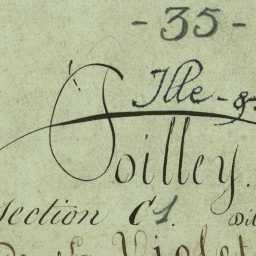 - 35 -
Ille - &
Poilley.
Section C 1. Di
Violet